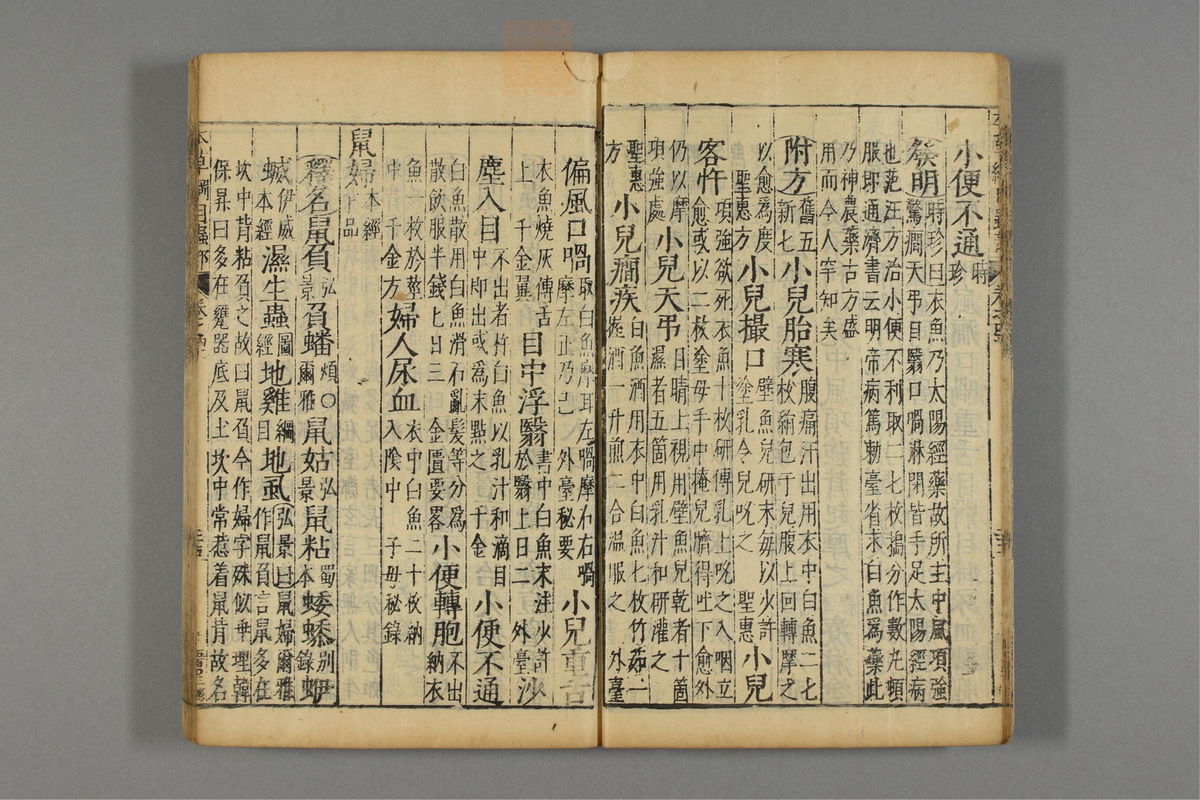 小便不通時珍
發明時珍曰衣魚乃太陽經藥故所主中風項強
驚癎天吊目翳口喎淋閉皆手足太陽經病
也范汪方治小便不利取二七枚搗分作數丸頓
服即通濟書云明帝病篤勅臺省求白魚爲藥此
乃神農藥古方盛
用而今人罕知矣
附方舊五新七小兒胎寒腹痛汗出用衣中白魚二七
枚絹包于兒腹上回轉摩之
以愈爲度聖惠方小兒撮口壁魚兒研末每以少許
塗乳令兒吮之聖惠小兒
客忤項強欲死衣魚十枚研傅乳上吮之入咽立
愈或以二枚塗母手中掩兒臍得吐下愈外
仍以摩項強處小兒天吊目睛上視用壁魚兒乾者十箇
濕者五箇用乳汁和研灌之
聖惠方小兒癎疾白魚酒用衣中白魚七枚竹茹一
握酒一升煎二合溫服之外臺
偏風口喎取白魚摩耳左喎摩右右喎
摩左正乃已外臺秘要小兒重舌
衣魚燒灰傅舌上千金翼目中浮翳書中白魚末注少許
於翳上日二外臺沙
塵入目不出者杵白魚以乳汁和滴目
中即出或爲末點之千金小便不通
白魚散用白魚滑石亂髮等分爲
散飲服半錢匕日三金匱要畧小便轉胞不出納衣
魚一枚於莖中千金方婦人尿血衣中白魚二十枚納
入陰中子母秘錄
鼠婦本經下品
釋名鼠負弘景負蟠煩爾雅○鼠姑弘景鼠粘蜀本蜲蟖别錄蛜
蝛伊威本經濕生蟲圖經地雞綱目地虱弘景曰鼠婦爾雅
作鼠負言鼠多在
坎中背粘負之故曰鼠負今作婦字殊似乖理韓
保昇曰多在甕器底及土坎中常惹着鼠背故名
本草綱目蟲部